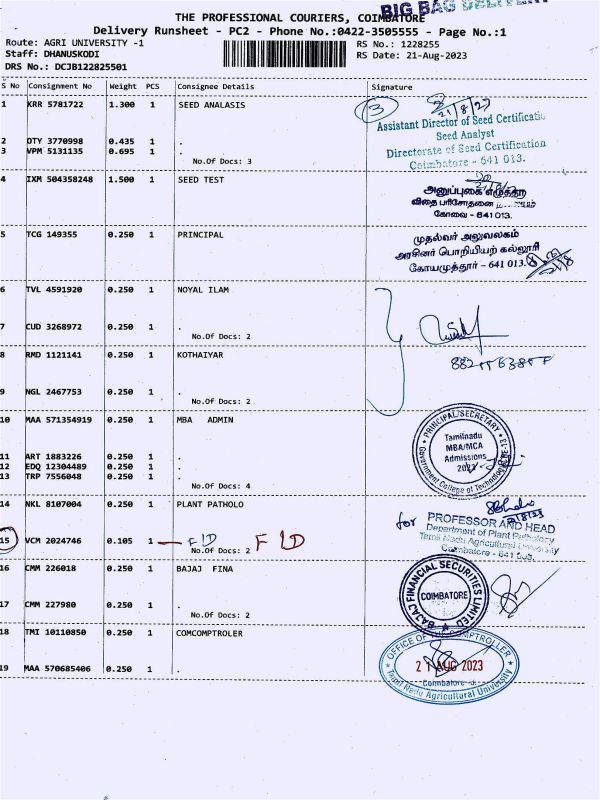 BIG BAG DELIVERY
THE PROFESSIONAL COURIERS, COIMBATORE
Delivery Runsheet - PC2 - Phone No.:0422-3505555 - Page No.:1
Route: AGRI UNIVERSITY -1
RS No.: 1228255
Staff: DHANUSKODI
RS Date: 21-Aug-2023
DRS No.: DCJB122825501
S No Consignment No Weight PCS Consignee Details Signature
1 KRR 5781722 1.300 1 SEED ANALASIS
3
21/8/23
Assistant Director of Seed Certificatio
Seed Analyst
2 DTY 3770998 0.435 1 .
3 VPM 5131135 0.695 1 .
Directorate of Seed Certification
No.Of Docs: 3
Coimbatore - 641 013.
4 IXM 504358248 1.500 1 SEED TEST
அனுப்புகை எழுத்தர்
விதை பரிசோதனை
கோவை - 641 013.
5 TCG 149355 0.250 1 PRINCIPAL
முதல்வர் அலுவலகம்
அரசினர் பொறியியற் கல்லூரி
கோயமுத்தூர் - 641 013.
6 TVL 4591920 0.250 1 NOYAL ILAM
7 CUD 3268972 0.250 1 .
No.Of Docs: 2
8 RMD 1121141 0.250 1 KOTHAIYAR
9 NGL 2467753 0.250 1 .
No.Of Docs: 2
10 MAA 571354919 0.250 1 MBA ADMIN
PRINCIPAL/SECRETARY
Tamilnadu
MBA/MCA
Admissions
Government College of Technology
11 ART 1883226 0.250 1 .
12 EDQ 12304489 0.250 1 .
13 TRP 7556048 0.250 1 .
No.Of Docs: 4
14 NKL 8107004 0.250 1 PLANT PATHOLO
for PROFESSOR AND HEAD
Department of Plant Pathology
Tamil Nadu Agricultural University
Coimbatore - 641 003.
15 VCM 2024746 0.105 1 FID FID
No.Of Docs: 2
16 CMM 226018 0.250 1 BAJAJ FINA
BAJAJ FINANCIAL SECURITIES LIMITED
COIMBATORE
17 CMM 227980 0.250 1 .
No.Of Docs: 2
18 TMI 10110850 0.250 1 COMCOMPTROLER
OFFICE OF THE COMPTROLLER
21 AUG 2023
19 MAA 570685406 0.250 1 .
Coimbatore -3.
Tamil Nadu Agricultural University